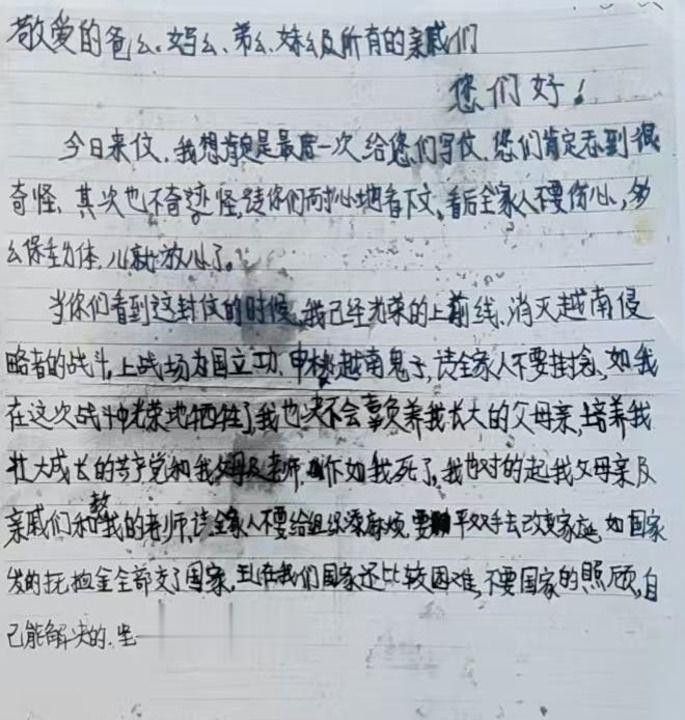 敬爱的爸么、妈么、弟么、妹么及所有的亲戚们
您们好！
今日来仪、我想肯定是最后一次给您们写仪、您们肯定看到很
奇怪、其次也不奇怪，请你们耐心地看下文、看后全家人不要伤心，多
么保重力体，儿就放心了。
当你们看到这封仪的时候，我已经光荣的上前线、消灭越南侵
略者的战斗，上战场为国立功、越南鬼子，请全家人不要挂念，如我
在这次战斗中光荣地牺牲了，我也决不会辜负养我长大的父母亲，培养我
壮大成长的共产党和我父母及老师，如我死了，我也对的起我父母亲及
亲戚们和教我的老师，请全家人不要给组织添麻烦，要双手去改变家庭，如国家
发的抚恤金全部交了国家，现在我们国家还比较困难，不要国家的照顾，自
己能解决的、坚